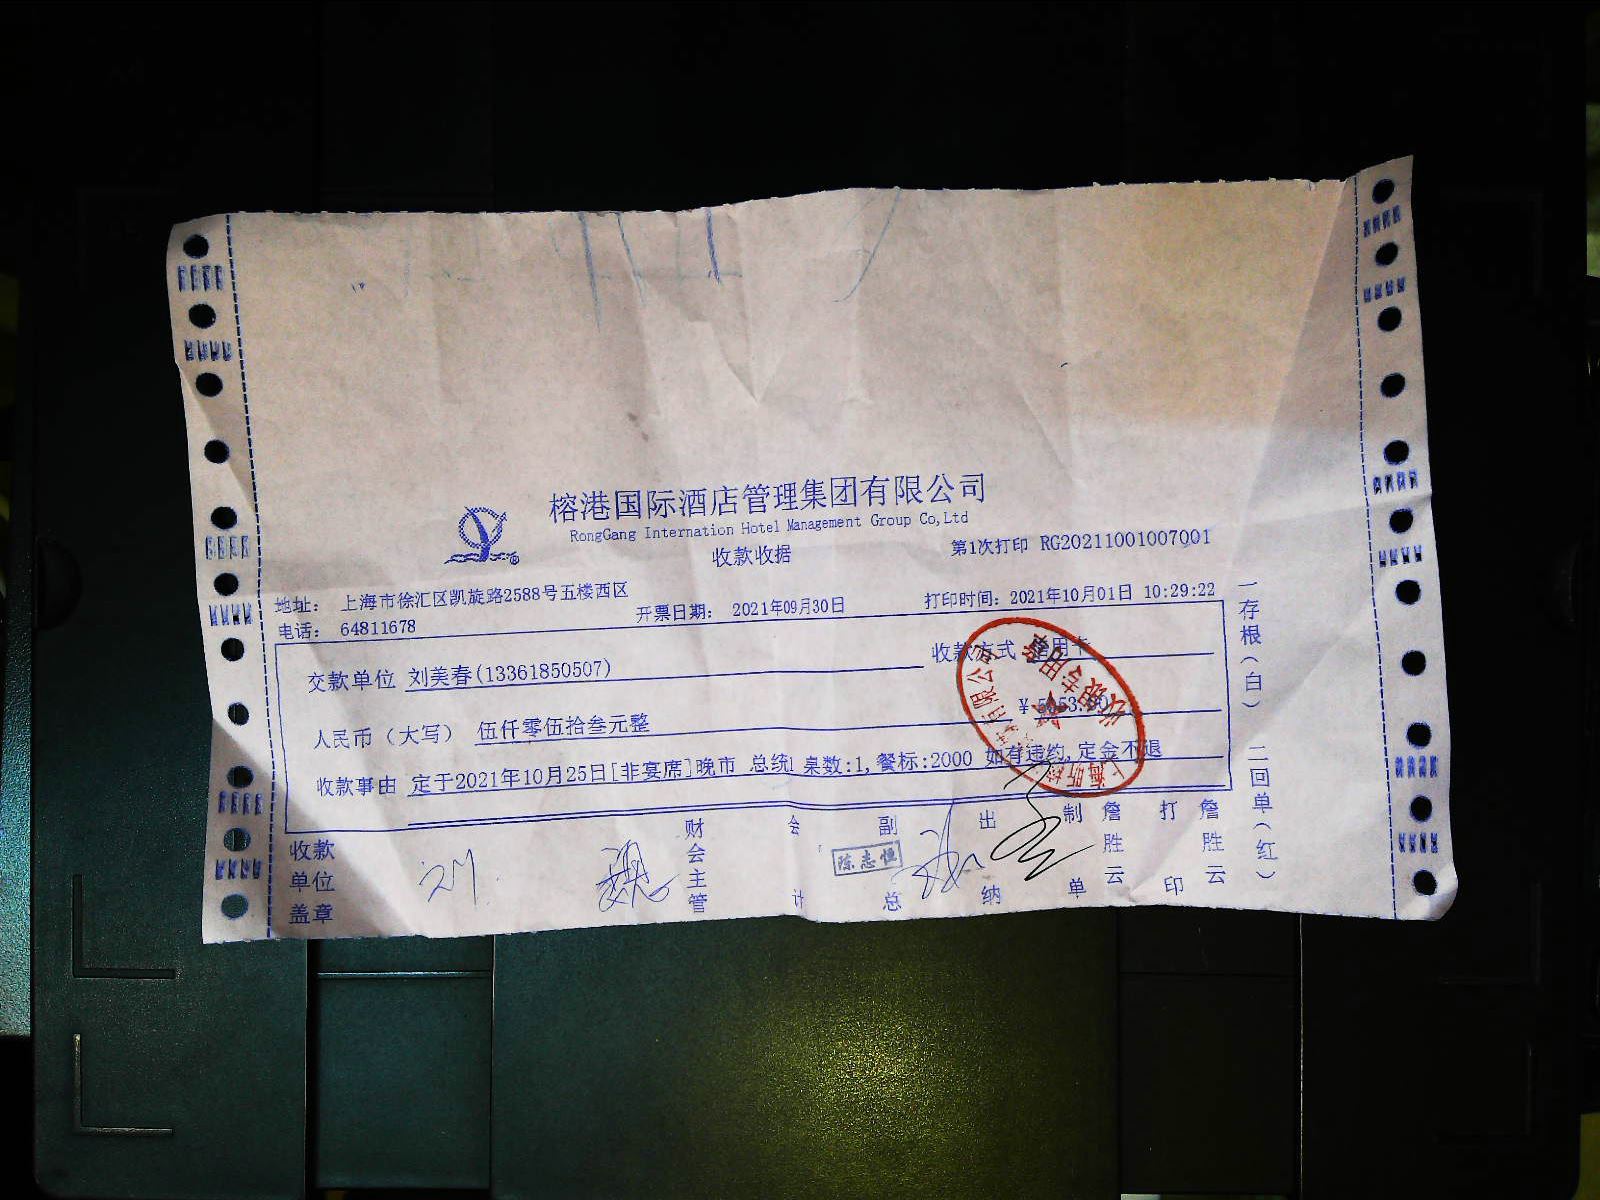 榕港国际酒店管理集团有限公司
RongGang Internation Hotel Management Group Co,Ltd
收款收据
第1次打印 RG20211001007001
地址： 上海市徐汇区凯旋路2588号五楼西区
电话： 64811678
开票日期： 2021年09月30日
打印时间：2021年10月01日 10:29:22
交款单位 刘美春(13361850507)
收款方式 信用卡
人民币（大写） 伍仟零伍拾叁元整
￥5053.00
收款事由 定于2021年10月25日[非宴席]晚市 总统1 桌数:1,餐标:2000 如有违约,定金不退
收款单位盖章
财会主管
会计
陈志恒
副总
出纳
制单
詹胜云
打印
詹胜云
一存根(白)
二回单(红)